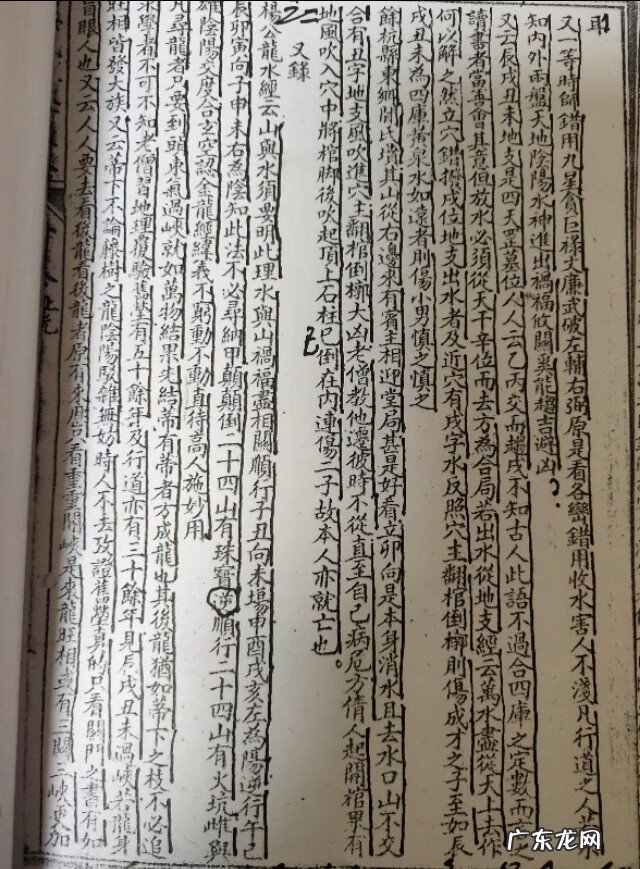 又一等時師錯用九星貪巨祿文廉武破左輔右弼原是看各巒錯用收水害人不淺凡行道之人若不
知內外兩盤天地陰陽水神進出禍福攸關奚能趨吉避凶?
又壬辰戌丑未地支是四天罡墓位人人云乙丙交而趨戌不知古人此語不過合四庫之定數而已
讀書者當善會其意但放水必須從天干辛位而去方為合局若出水從地支經云萬水盡從天上去作
何以解之然立穴錯撥戌位地支出水者及近穴有戌字水反照穴主翻棺倒槨則傷成才之子至如辰
戌丑未為四庫黃泉水如遠者則傷小男慎之慎之
餘杭縣東鄉關氏墳其山從右邊來有賓主相迎堂局甚是好看立卯向是本身消水且去水口山不交
合有丑字地支風吹進穴主翻棺倒槨大凶老僧教他遷彼時不從直至自己病危方倩人起開棺果有
地風吹入穴中將棺脚後吹起頂上石柱已倒在內連傷二子故本人亦就亡也。
又錄
楊公龍水經云山與水須要明此理水與山禍福盡相關順行子丑向未塲申酉戌亥左為陽逆行午巳
辰卯寅向子申未右為陰知此法不必尋納甲顛顛倒二十四山有珠寶逆順行二十四山有火坑雌與
雄陰陽交度合玄空認金龍經緯義不窮動不動直待高人施妙用
凡尋龍者只要到頭束氣過峽就如萬物結果先結蒂有蒂者方成龍也其後龍猶如蒂下之枝不必追
求學者不可不知老僧習地理覆驗舊塋有五十餘年及行道亦有三十餘年見辰戌丑未過峽若龍身
旺相皆發大族又云蒂下不論藤樹之龍陰陽駁雜無妨時人不去攷證舊塋真的只看關門之書有如
盲眼人也又云人人要去看後龍看後龍者原有來歷只看重重關峽是來龍旺相或有三關二峽更加
广东龙网